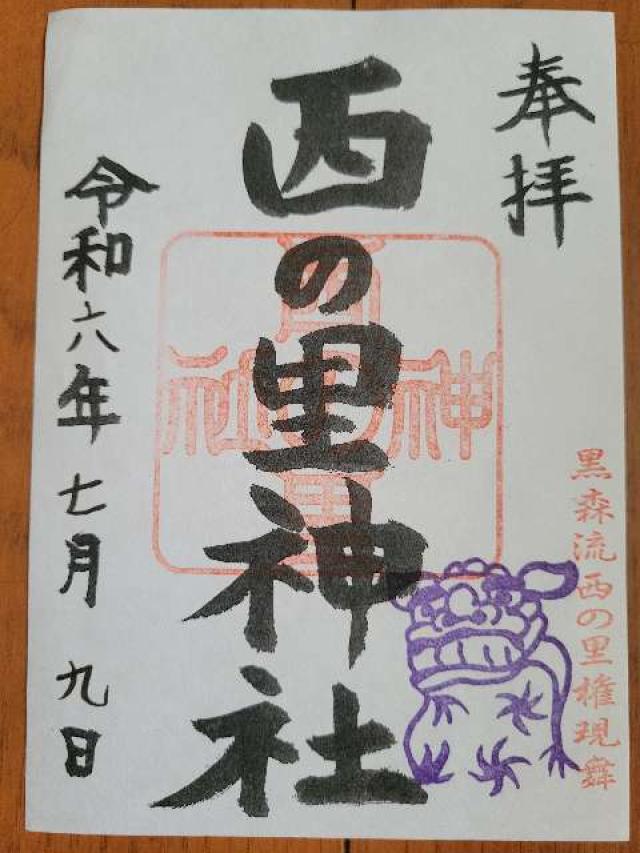 奉拝
黒森流西の里権現舞
西の里神社
西の里
神社
令和六年七月九日